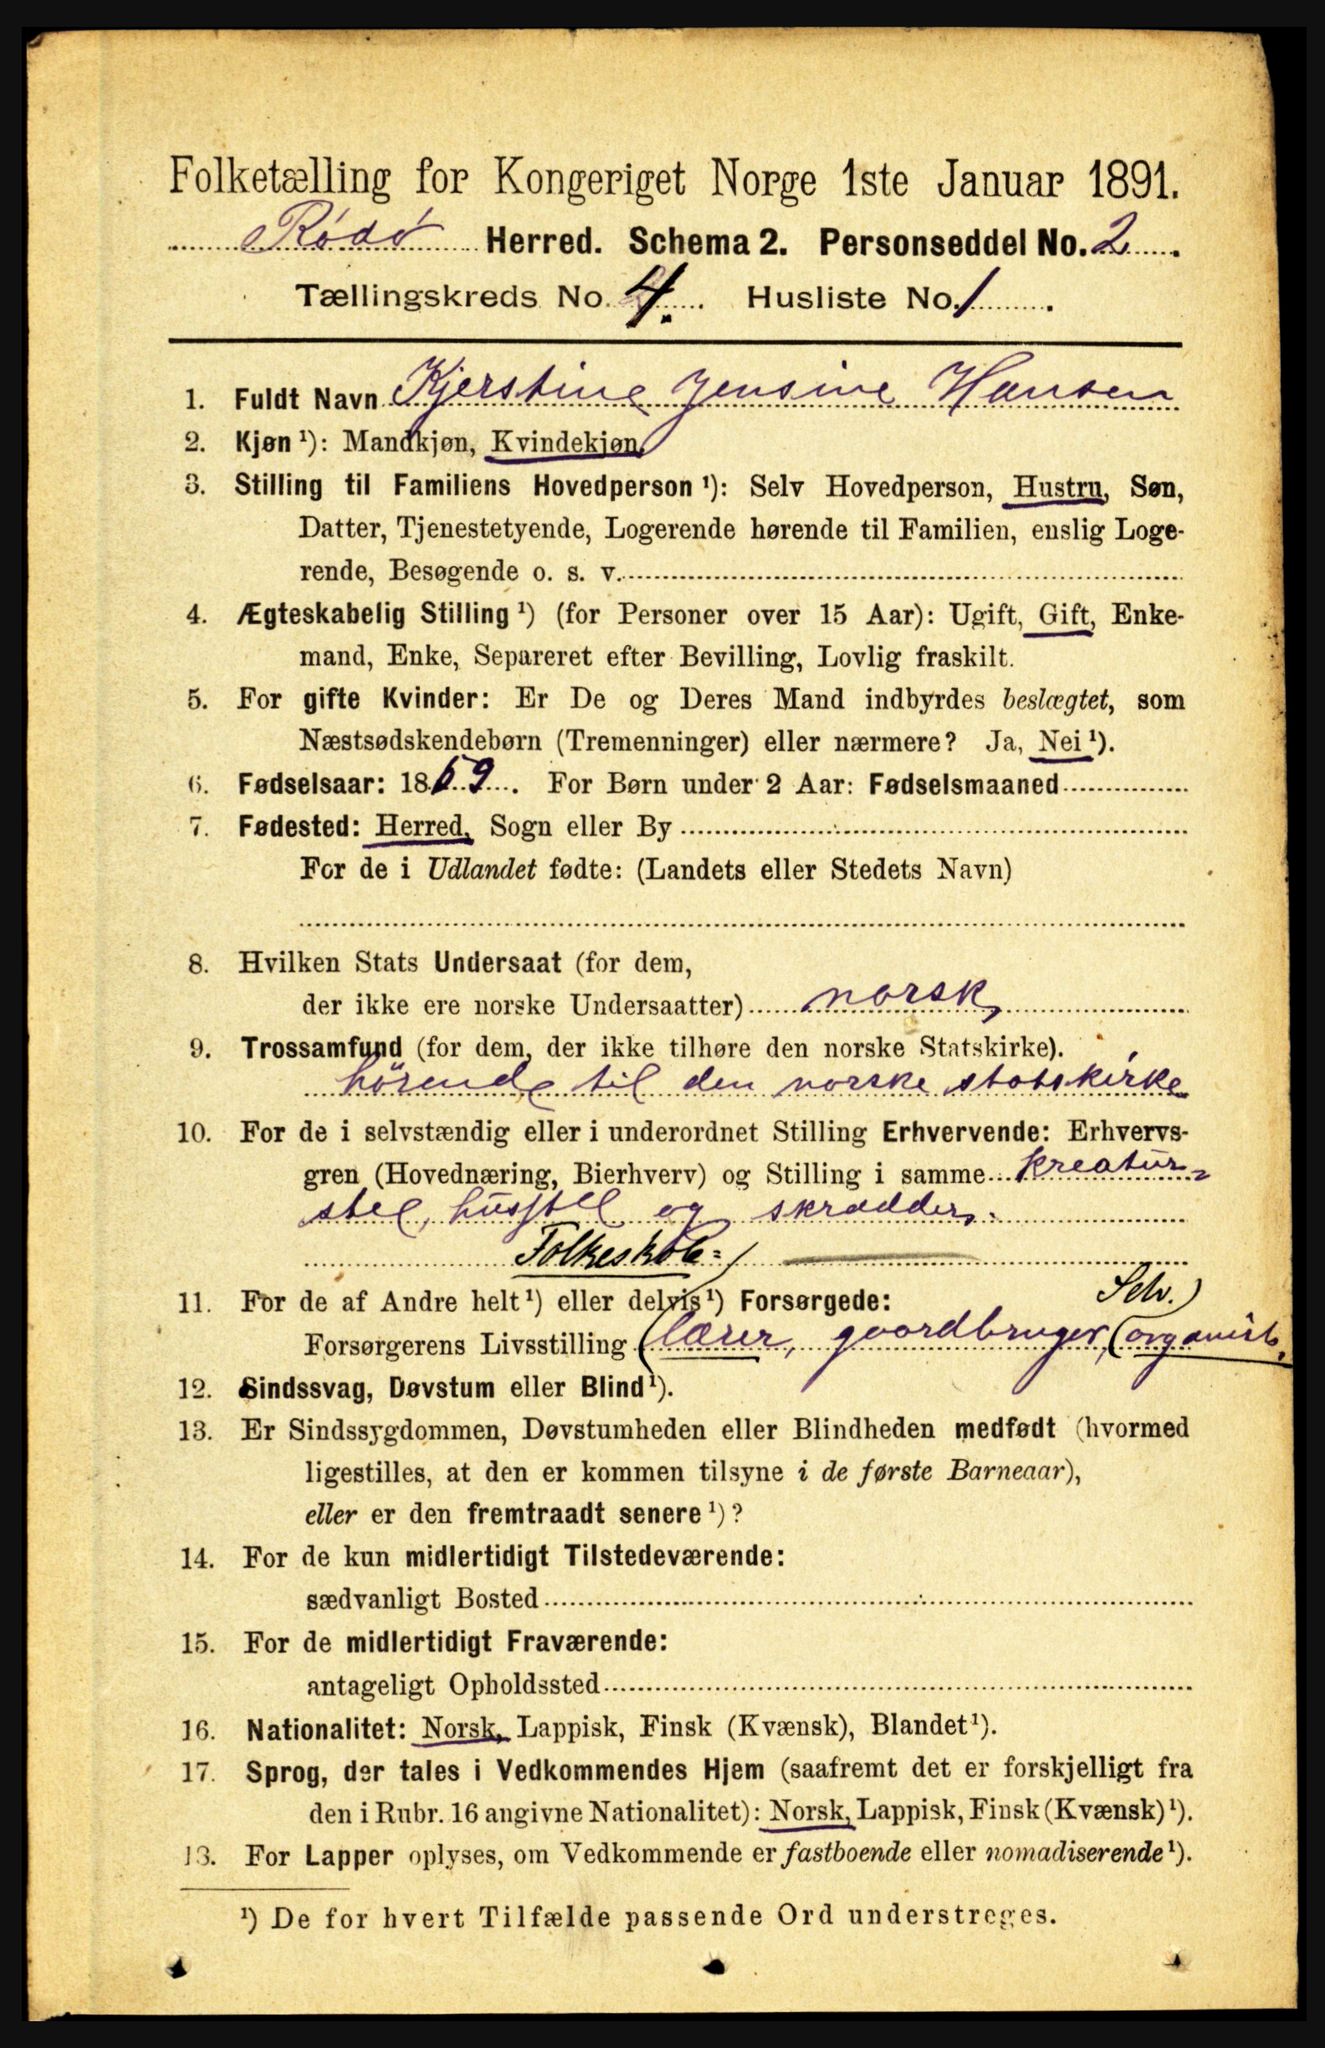 Folketælling for Kongeriget Norge 1ste Januar 1891.
Rödö Herred. Schema 2. Personseddel No. 2.
Tællingskreds No. 4. Husliste No. 1.
1. Fuldt Navn Kjerstine Jensine Hansen
2. Kjøn ¹): Mandkjøn, Kvindekjøn,
3. Stilling til Familiens Hovedperson ¹): Selv Hovedperson, Hustru, Søn,
Datter, Tjenestetyende, Logerende hørende til Familien, enslig Loge-
rende, Besøgende o. s. v.
4. Ægteskabelig Stilling ¹) (for Personer over 15 Aar): Ugift, Gift, Enke-
mand, Enke, Separeret efter Bevilling, Lovlig fraskilt.
5. For gifte Kvinder: Er De og Deres Mand indbyrdes beslægtet, som
Næstsødskendebørn (Tremenninger) eller nærmere? Ja, Nei ¹).
6. Fødselsaar: 1869. For Børn under 2 Aar: Fødselsmaaned
7. Fødested: Herred, Sogn eller By
For de i Udlandet fødte: (Landets eller Stedets Navn)
8. Hvilken Stats Undersaat (for dem,
der ikke ere norske Undersaatter) norsk,
9. Trossamfund (for dem, der ikke tilhøre den norske Statskirke).
hörende til den norske statskirke
10. For de i selvstændig eller i underordnet Stilling Erhvervende: Erhvervs-
gren (Hovednæring, Bierhverv) og Stilling i samme kreatur-
stel, husstel og skrædder.
Folkeskole=)
11. For de af Andre helt ¹) eller delvis ¹) Forsørgede: Selv.)
Forsørgerens Livsstilling (lærer, gaardbruger, (organist.
12. Sindssvag, Døvstum eller Blind ¹).
13. Er Sindssygdommen, Døvstumheden eller Blindheden medfødt (hvormed
ligestilles, at den er kommen tilsyne i de første Barneaar),
eller er den fremtraadt senere ¹)?
14. For de kun midlertidigt Tilstedeværende:
sædvanligt Bosted
15. For de midlertidigt Fraværende:
antageligt Opholdssted
16. Nationalitet: Norsk, Lappisk, Finsk (Kvænsk), Blandet ¹).
17. Sprog, der tales i Vedkommendes Hjem (saafremt det er forskjelligt fra
den i Rubr. 16 angivne Nationalitet): Norsk, Lappisk, Finsk (Kvænsk) ¹).
18. For Lapper oplyses, om Vedkommende er fastboende eller nomadiserende ¹).
¹) De for hvert Tilfælde passende Ord understreges.